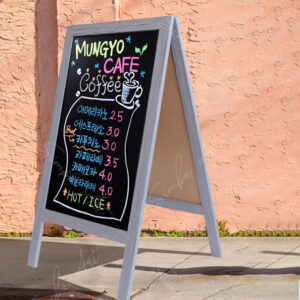 MUNGYO
CAFE
Coffee
아메리카노 2.5
에스프레소 3.0
Hot 카푸치노 3.0
카페라떼 3.5
카페모카 4.0
바닐라라떼 4.0
HOT / ICE